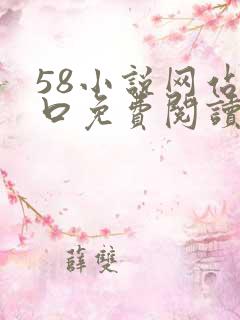 58小説网佔
口免費閱讀
薛雙